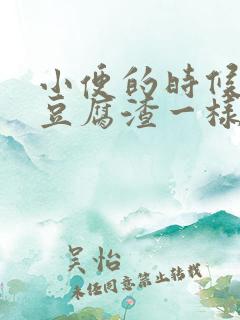 小便的时候
豆腐渣一样
吴怡
未任同意禁止转载